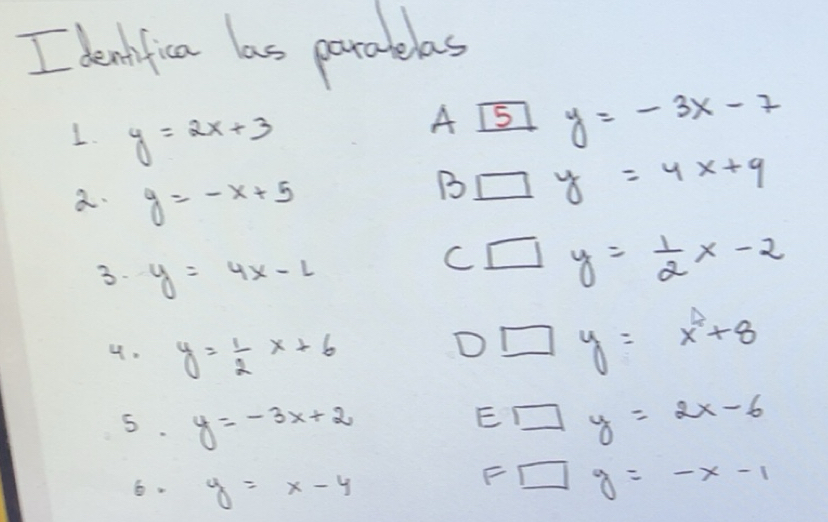 Identifica las paralelas
1. y = 2x+3
A 5 y = - 3x - 7
2. y = -x+5
B y = 4x+9
3. y = 4x-1
C y = 1/2 x - 2
4. y = 1/2 x + 6
D y = x+8
5. y = -3x+2
E y = 2x-6
6. y = x-4
F y = -x-1